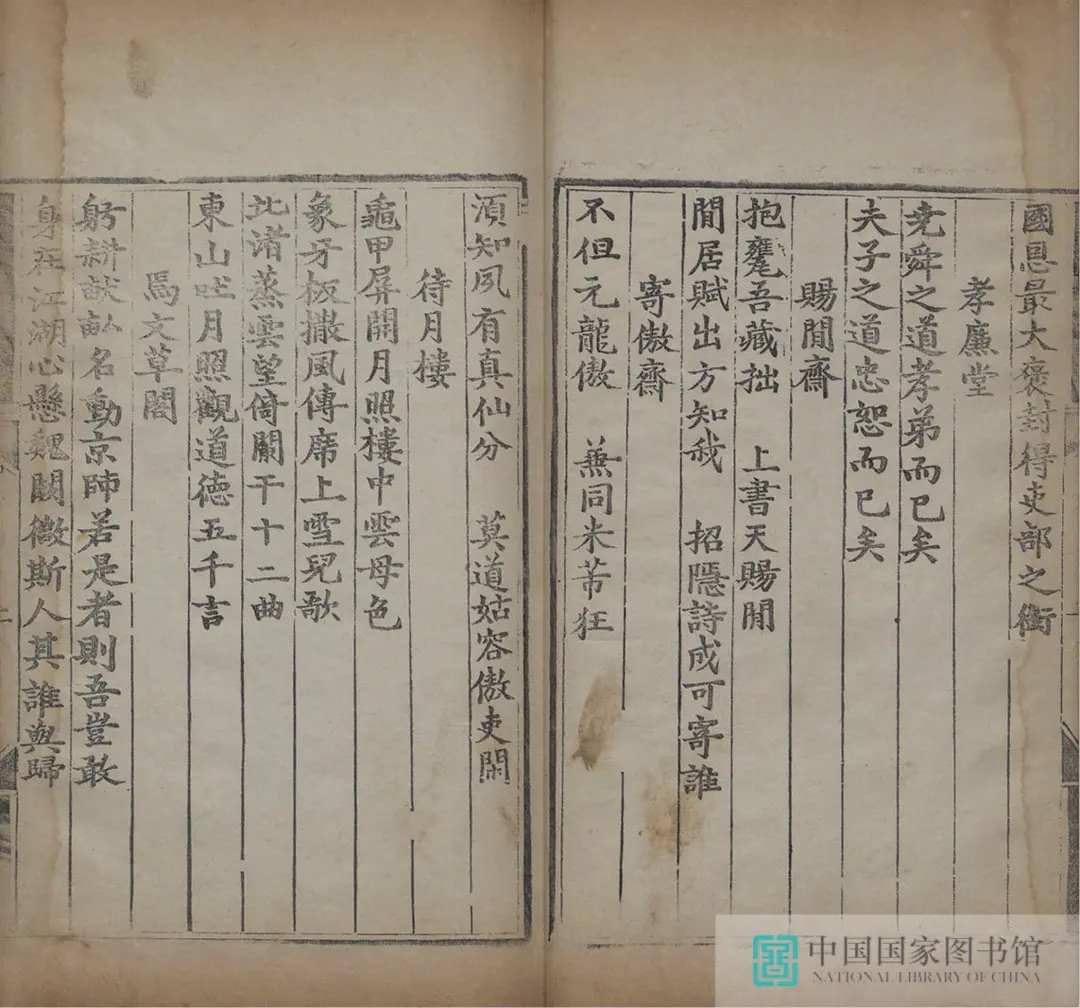 國恩最大褒封得吏部之銜
孝廉堂
尭舜之道孝弟而已矣
夫子之道忠恕而已矣
賜閒齋
抱甕吾藏拙 上書天賜閒
閒居賦出方知我 招隱詩成可寄誰
寄傲齋
不但元龍傲 兼同米芾狂
須知夙有真仙分 莫道姑容傲吏閑
待月樓
龜甲屏開月照樓中雲母色
象牙板撒風傳席上雪兒歌
北渚蒸雲望倚闌干十二曲
東山吐月照觀道德五千言
焉文草閣
躬耕畎畝名動京師若是者則吾豈敢
身在江湖心懸魏闕微斯人其誰與歸
中国国家图书馆
NATIONAL LIBRARY OF CHINA